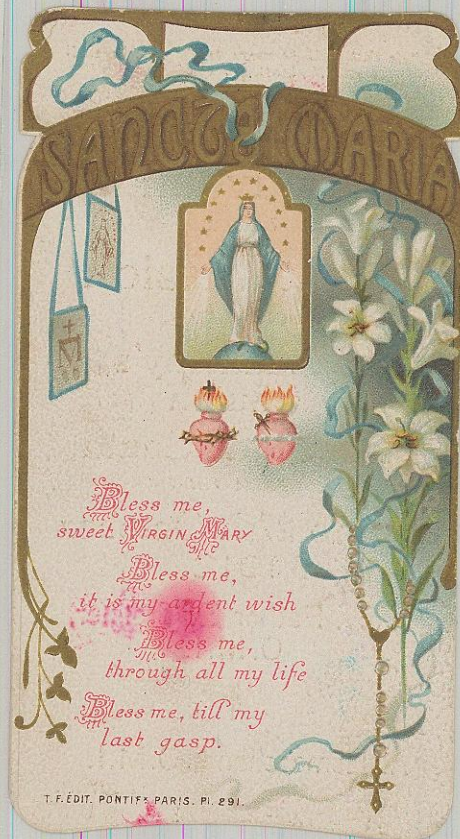 SANCTA MARIA
M
Bless me,
sweet VIRGIN MARY
Bless me,
it is my ardent wish
Bless me,
through all my life
Bless me, till my
last gasp.
T. F. ÉDIT. PONTIFX PARIS. Pl. 291.